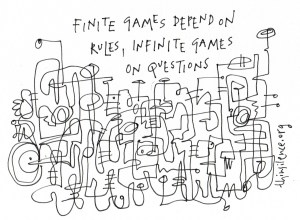 FINITE GAMES DEPEND ON
RULES, INFINITE GAMES
ON QUESTIONS